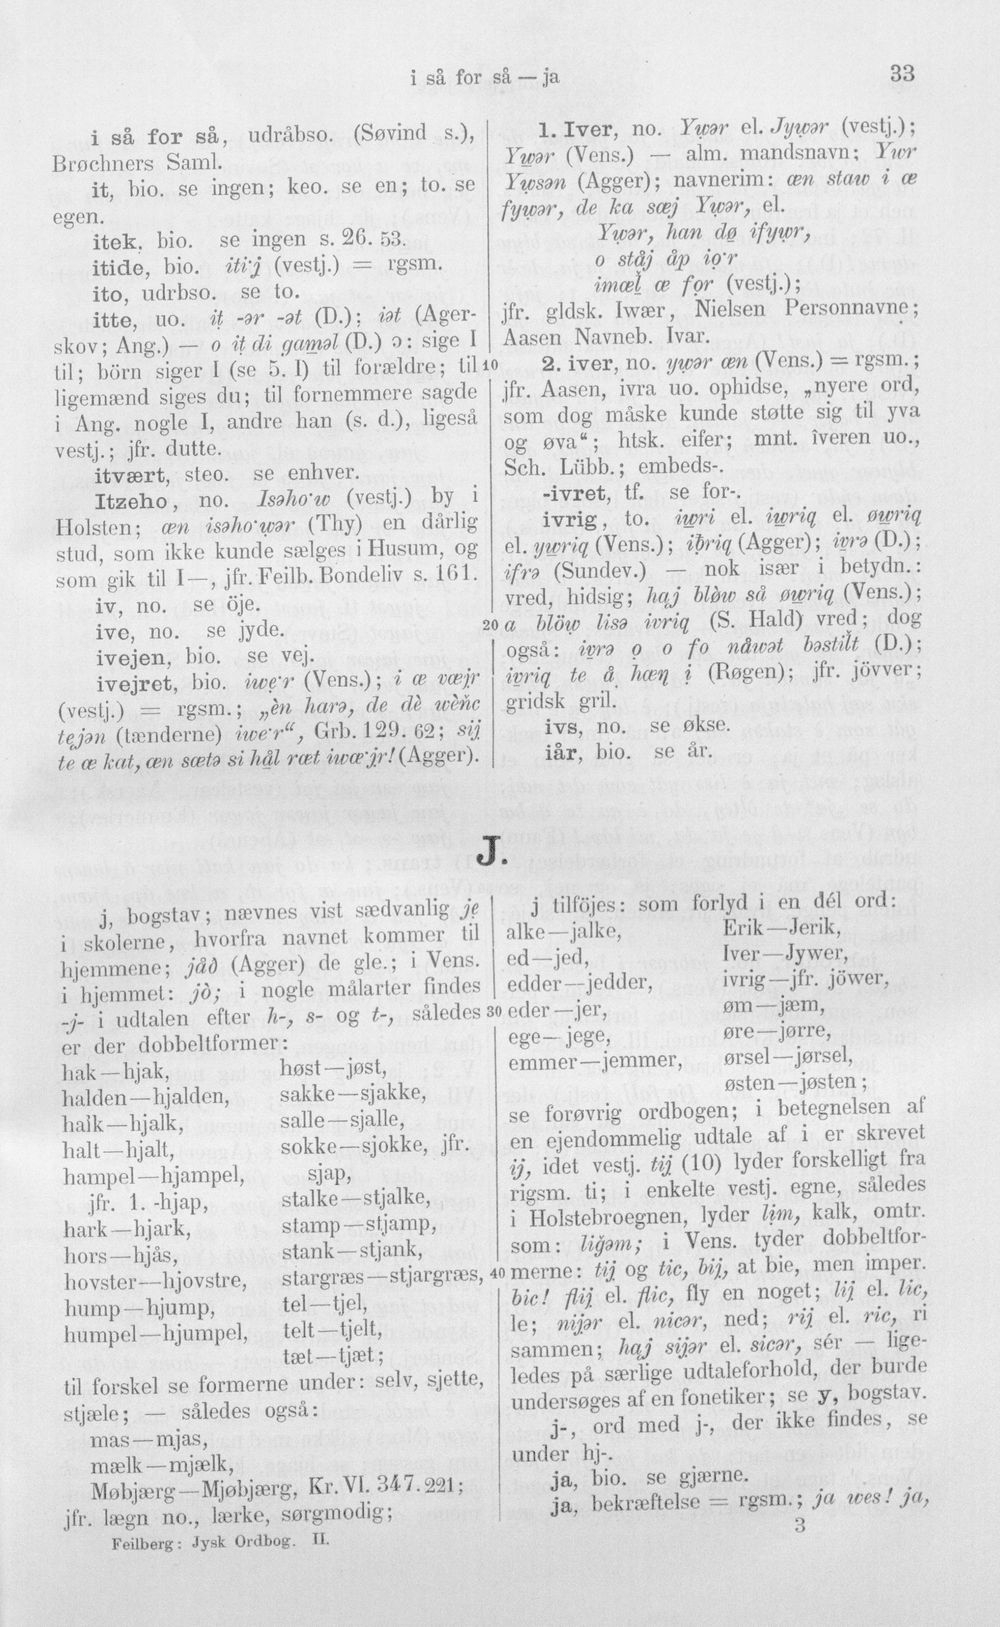 i så for så — ja
33
i så for så, udråbso. (Søvind s.),
Brøchners Saml.
it, bio. se ingen; keo. se en; to. se
egen.
itek, bio. se ingen s. 26. 53.
itide, bio. iti·j (vestj.) = rgsm.
ito, udrbso. se to.
itte, uo. it -ər -ət (D.); iət (Ager-
skov; Ang.) — o it di gaməl (D.) ɔ: sige I
til; börn siger I (se 5. I) til forældre; til
ligemænd siges du; til fornemmere sagde
i Ang. nogle I, andre han (s. d.), ligeså
vestj.; jfr. dutte.
itvært, steo. se enhver.
Itzeho, no. Isəho·w (vestj.) by i
Holsten; æn isəho·wər (Thy) en dårlig
stud, som ikke kunde sælges i Husum, og
som gik til I—, jfr. Feilb. Bondeliv s. 161.
iv, no. se öje.
ive, no. se jyde.
ivejen, bio. se vej.
ivejret, bio. iwe·r (Vens.); i æ væjr
(vestj.) = rgsm.; „èn harə, de dè wèńc
tejən (tænderne) iwe·r“, Grb. 129. 62; sij
te æ kat, æn sætə si hål ræt iwæ·jr! (Agger).
1. Iver, no. Ywər el. Jywər (vestj.);
Ywər (Vens.) — alm. mandsnavn; Ywr
Ywsən (Agger); navnerim: æn staw i æ
fywər, de ka sæj Ywər, el.
Ywər, han dø ifywr,
o ståj åp io·r
imæl æ for (vestj.);
jfr. gldsk. Iwær, Nielsen Personnavne;
Aasen Navneb. Ivar.
10 2. iver, no. ywər æn (Vens.) = rgsm.;
jfr. Aasen, ivra uo. ophidse, „nyere ord,
som dog måske kunde støtte sig til yva
og øva“; htsk. eifer; mnt. îveren uo.,
Sch. Lübb.; embeds-.
-ivret, tf. se for-.
ivrig, to. iwri el. iwriq el. øwriq
el. ywriq (Vens.); iƀriq (Agger); ivrə (D.);
ifrə (Sundev.) — nok især i betydn.:
vred, hidsig; haj blòw så øwriq (Vens.);
20 a blöw lisə ivriq (S. Hald) vred; dog
også: ivrə o o fo nåwət bəstilt (D.);
ivriq te å hæŋ i (Røgen); jfr. jövver;
gridsk gril.
ivs, no. se økse.
iår, bio. se år.
J.
j, bogstav; nævnes vist sædvanlig je
i skolerne, hvorfra navnet kommer til
hjemmene; jåð (Agger) de gle.; i Vens.
i hjemmet: jò; i nogle målarter findes
-j- i udtalen efter h-, s- og t-, således
er der dobbeltformer:
hak—hjak, høst—jøst,
halden—hjalden, sakke—sjakke,
halk—hjalk, salle—sjalle,
halt—hjalt, sokke—sjokke, jfr.
hampel—hjampel, sjap,
jfr. 1. -hjap, stalke—stjalke,
hark—hjark, stamp—stjamp,
hors—hjås, stank—stjank,
hovster—hjovstre, stargræs—stjargræs,
hump—hjump, tel—tjel,
humpel—hjumpel, telt—tjelt,
tæt—tjæt;
til forskel se formerne under: selv, sjette,
stjæle; — således også:
mas—mjas,
mælk—mjælk,
Møbjærg—Mjøbjærg, Kr. VI. 347. 221;
jfr. lægn no., lærke, sørgmodig;
j tilföjes: som forlyd i en dél ord:
alke—jalke, Erik—Jerik,
ed—jed, Iver—Jywer,
edder—jedder, ivrig—jfr. jöwer,
30 eder—jer, øm—jæm,
ege—jege, øre—jørre,
emmer—jemmer, ørsel—jørsel,
østen—jøsten;
se forøvrig ordbogen; i betegnelsen af
en ejendommelig udtale af i er skrevet
ij, idet vestj. tij (10) lyder forskelligt fra
rigsm. ti; i enkelte vestj. egne, således
i Holstebroegnen, lyder lim, kalk, omtr.
som: liǧəm; i Vens. tyder dobbeltfor-
40 merne: tij og tic, bij, at bie, men imper.
bic! flij el. flic, fly en noget; lij el. lic,
le; nijər el. nicər, ned; rij el. ric, ri
sammen; haj sijər el. sicər, sér — lige-
ledes på særlige udtaleforhold, der burde
undersøges af en fonetiker; se y, bogstav.
j-, ord med j-, der ikke findes, se
under hj-.
ja, bio. se gjærne.
ja, bekræftelse = rgsm.; ja wes! ja,
Feilberg: Jysk Ordbog. II.
3